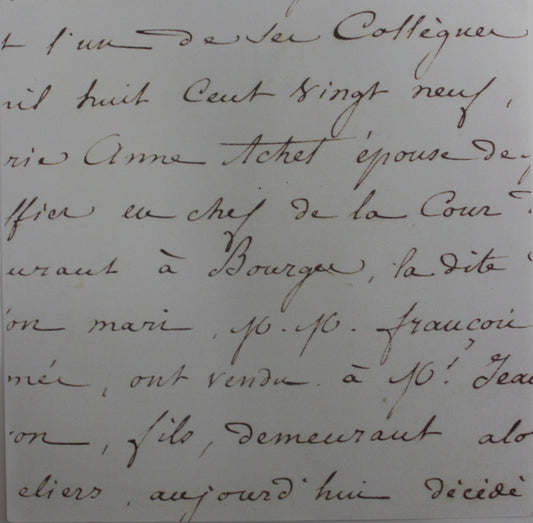 t l'un de ses Collègues
mil huit Cent Vingt neuf,
rie Anne Achet épouse de
ffier en chef de la Cour
urant à Bourges, la dite
on mari, M. M. françois
més, ont vendu à Mr. Jean
on, fils, demeurant alo
eliers, aujourd'hui décédé